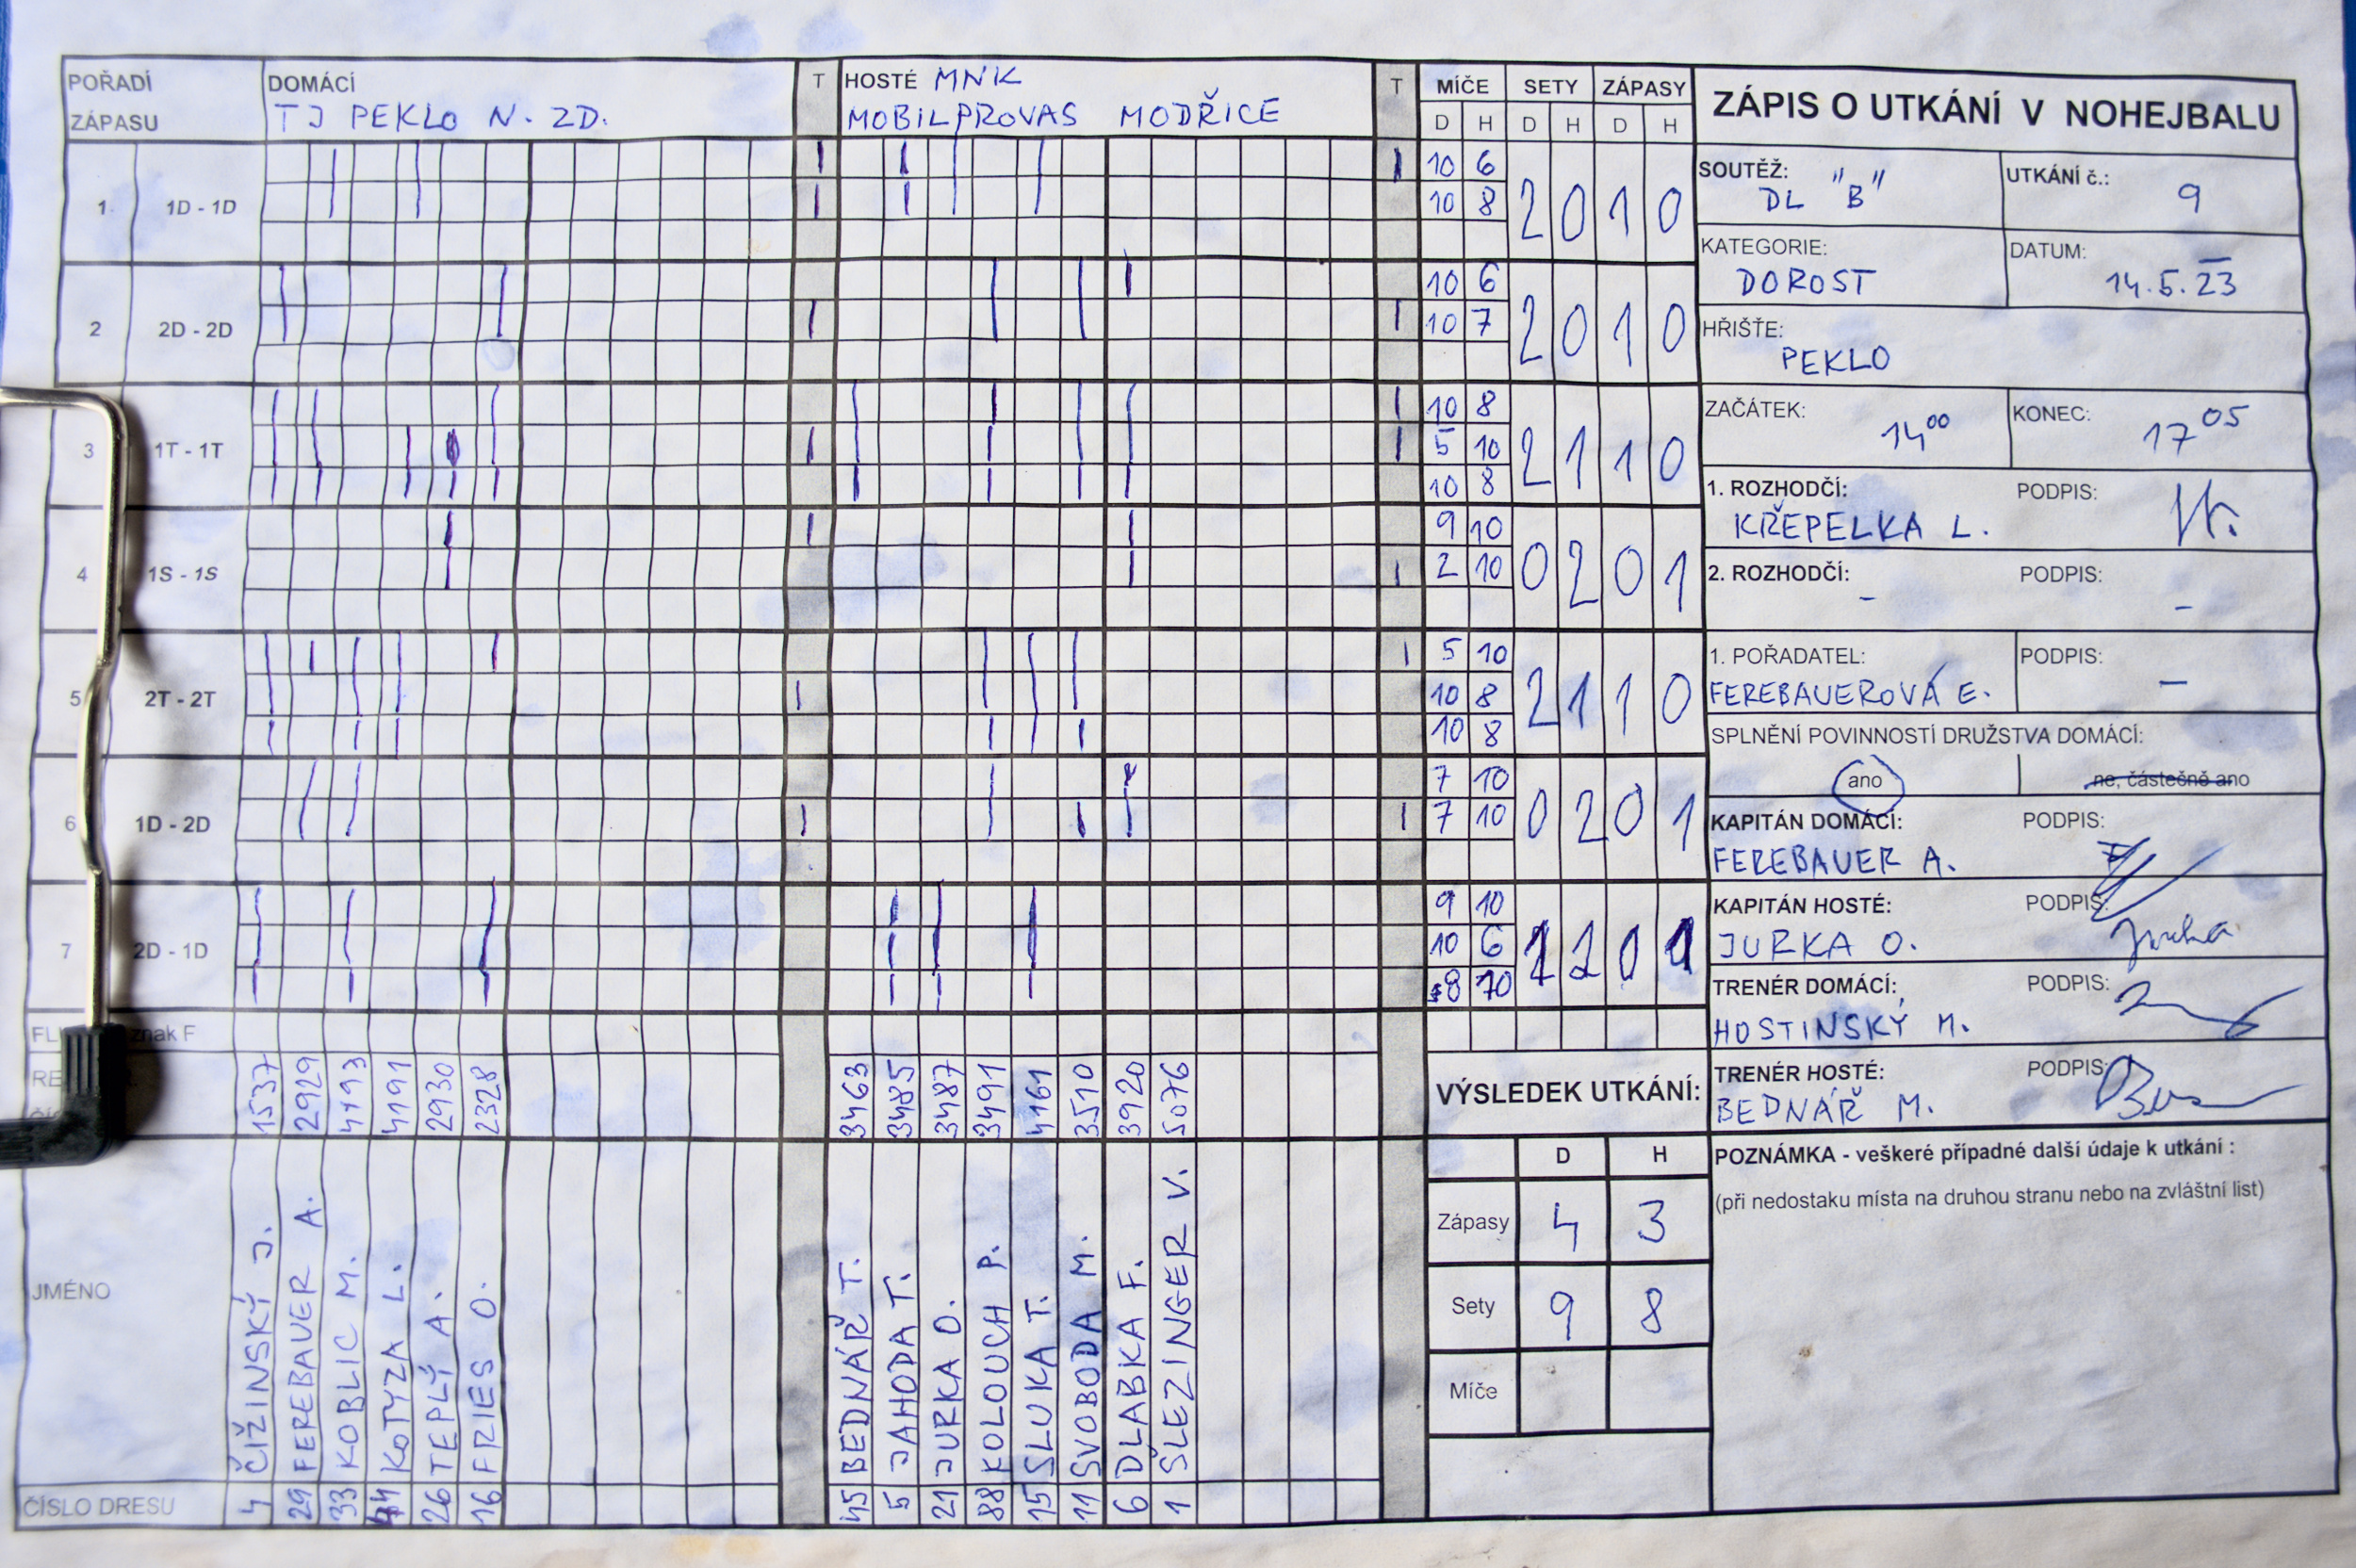 POŘADÍ ZÁPASU
DOMÁCÍ
TJ PEKLO N. ZD.
T
HOSTÉ MNK
MOBILPROVAS MODŘICE
T
MÍČE SETY ZÁPASY
D H D H D H
1. 1D - 1D
10 6
10 8
2 0 1 0
2 2D - 2D
10 6
10 7
2 0 1 0
3 1T - 1T
10 8
5 10
10 8
2 1 1 0
4 1S - 1S
9 10
2 10
0 2 0 1
5 2T - 2T
5 10
10 8
10 8
2 1 1 0
6 1D - 2D
7 10
7 10
0 2 0 1
7 2D - 1D
9 10
10 6
8 10
1 2 0 1
znak F
1537
2929
4193
4191
2930
2328
3463
3485
3487
3491
4161
3510
3920
5076
JMÉNO
ČIŽINSKÝ J.
FEREBAUER A.
KOBLIC M.
KOTYZA L.
TEPLÝ A.
FRIES O.
BEDNÁŘ T.
JAHODA T.
JURKA O.
KOLOUCH P.
SLUKA T.
SVOBODA M.
DLABKA F.
ŠLEZINGER V.
ČÍSLO DRESU
4
29
33
44
26
16
45
5
21
88
15
11
6
1
ZÁPIS O UTKÁNÍ V NOHEJBALU
SOUTĚŽ:
DL "B"
UTKÁNÍ č.:
9
KATEGORIE:
DOROST
DATUM:
14.5.23
HŘIŠTE:
PEKLO
ZAČÁTEK:
14 00
KONEC:
17 05
1. ROZHODČÍ: PODPIS:
KŘEPELKA L.
2. ROZHODČÍ: PODPIS:
- -
1. POŘADATEL: PODPIS:
FEREBAUEROVÁ E. -
SPLNĚNÍ POVINNOSTÍ DRUŽSTVA DOMÁCÍ:
ano ne, částečně ano
KAPITÁN DOMÁCÍ: PODPIS:
FEREBAUER A.
KAPITÁN HOSTÉ: PODPIS:
JURKA O. Jurka
TRENÉR DOMÁCÍ: PODPIS:
HOSTINSKÝ M.
TRENÉR HOSTÉ: PODPIS:
BEDNÁŘ M.
VÝSLEDEK UTKÁNÍ:
D H
Zápasy 4 3
Sety 9 8
Míče
POZNÁMKA - veškeré případné další údaje k utkání :
(při nedostaku místa na druhou stranu nebo na zvláštní list)